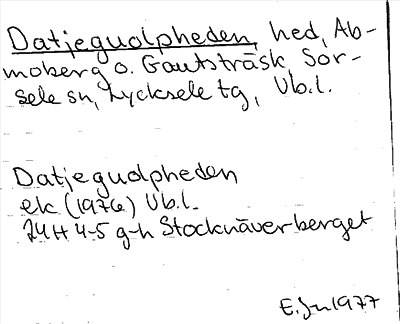 Datjeguolpheden, hed, Ab-
moberg o. Gautsträsk, Sor-
sele sn, Lycksele tg, Vb.l.
Datjeguolpheden
ek (1976) Vb.l.
24H 4-5 g-h Stocknäverberget
E.Jn 1977